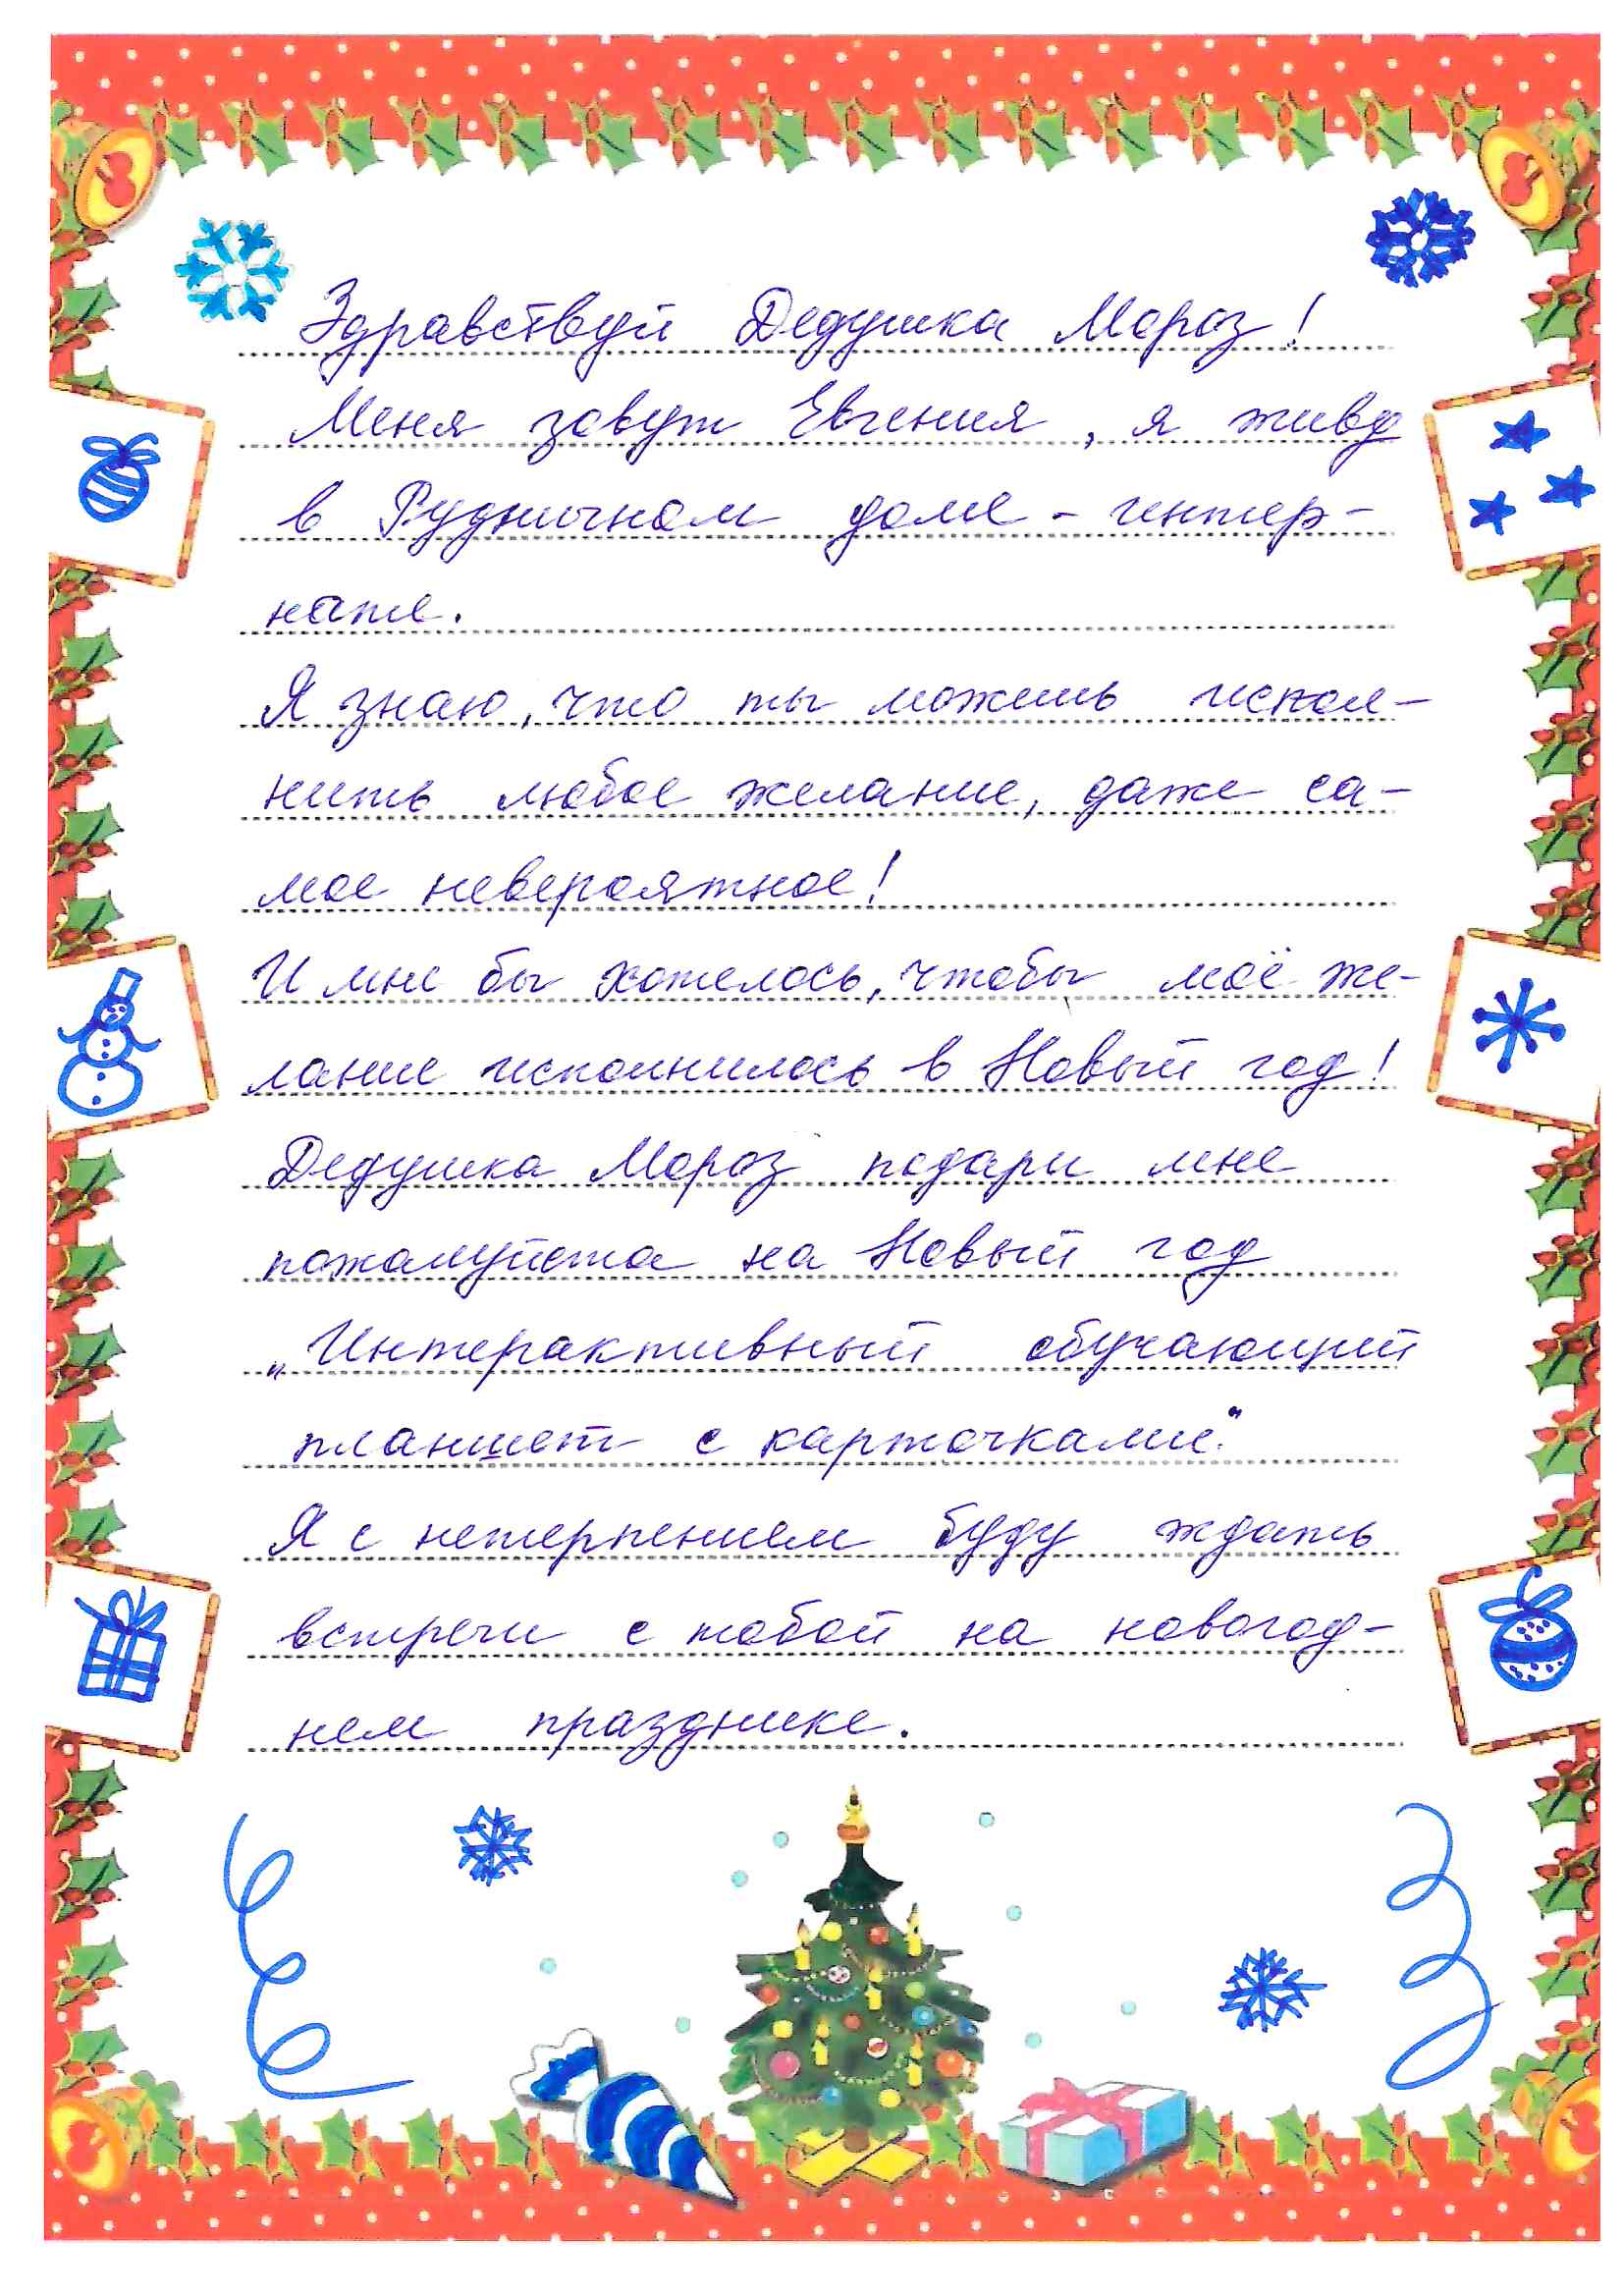 Здравствуй Дедушка Мороз!
Меня зовут Евгения, я живу
в Рудничном доме - интер-
нате.
Я знаю, что ты можешь испол-
нить любое желание, даже са-
мое невероятное!
И мне бы хотелось, чтобы моё же-
лание исполнилось в Новый год!
Дедушка Мороз подари мне
пожалуйста на Новый год
„Интерактивный обучающий
планшет с карточками."
Я с нетерпением буду ждать
встречи с тобой на новогод-
нем празднике.